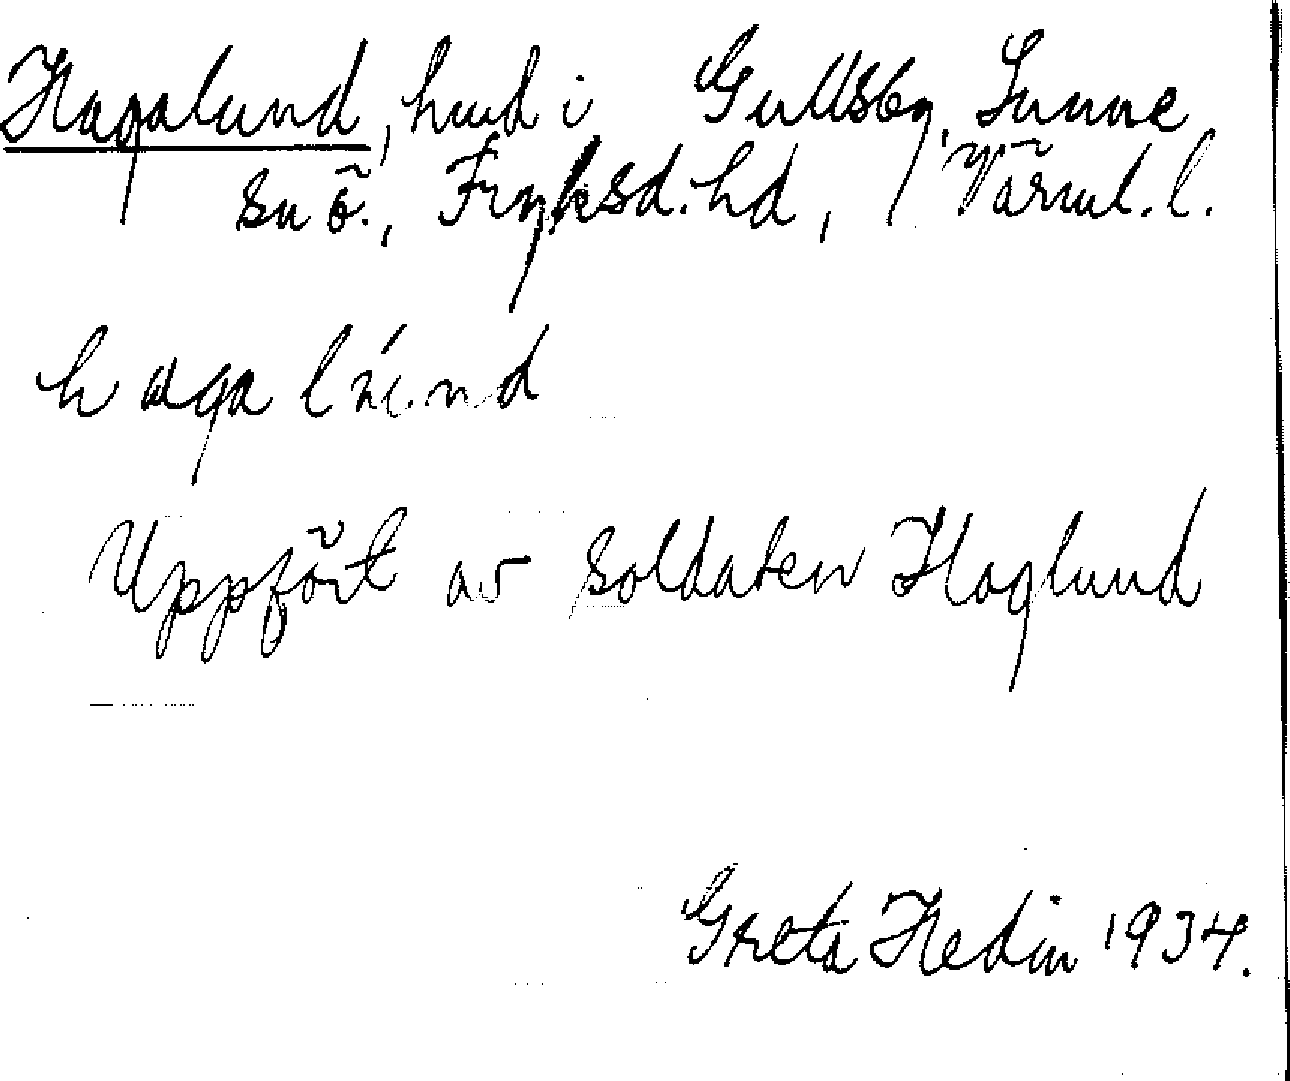 Hagalund, hmd i Gullsby, Sunne
sn ö., Fryksd. hd, Värml. l.
hagalúnd
Uppfört av soldaten Haglund
Greta Hedin 1934.